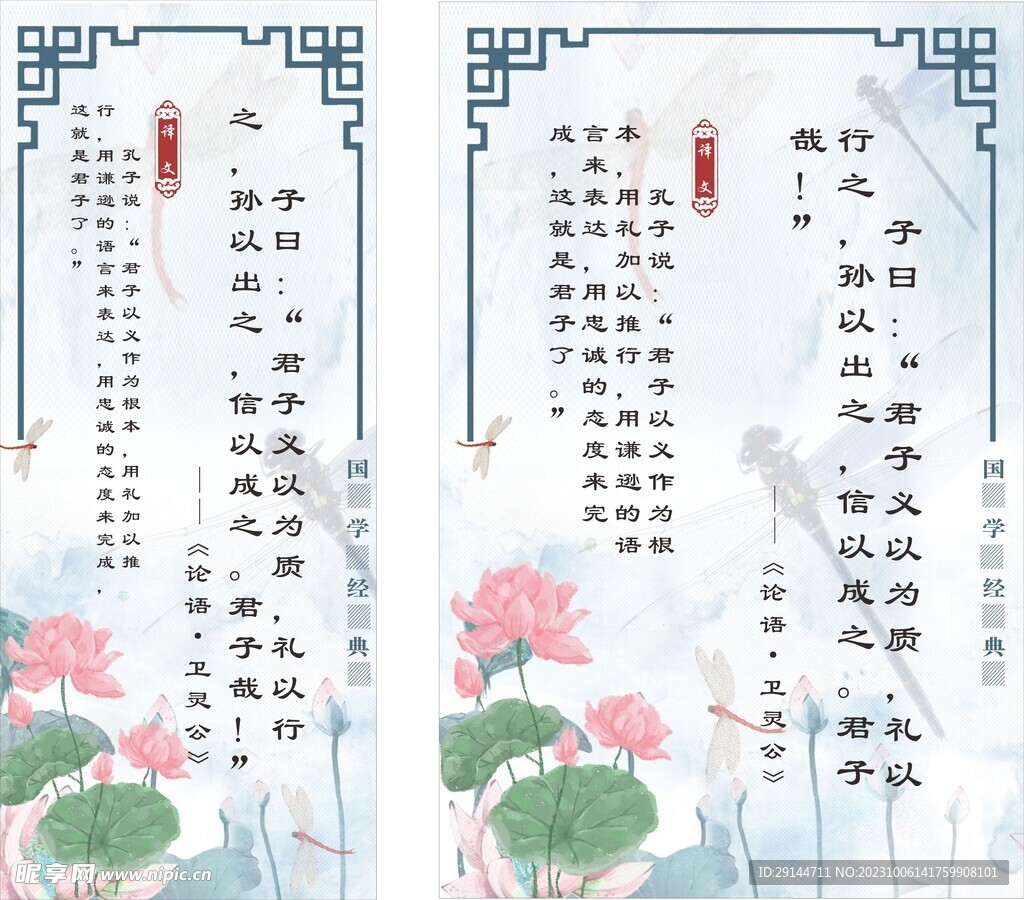 子曰：“君子义以为质，礼以行
之，孙以出之，信以成之。君子哉！”
——《论语·卫灵公》
译文
孔子说：“君子以义作为根本，用礼加以推
行，用谦逊的语言来表达，用忠诚的态度来完成，
这就是君子了。”
国学经典
子曰：“君子义以为质，礼以
行之，孙以出之，信以成之。君子
哉！”
——《论语·卫灵公》
译文
孔子说：“君子以义作为根
本，用礼加以推行，用谦逊的语
言来表达，用忠诚的态度来完
成，这就是君子了。”
国学经典
昵享网 www.nipic.cn
ID:29144711 NO:20231006141759908101